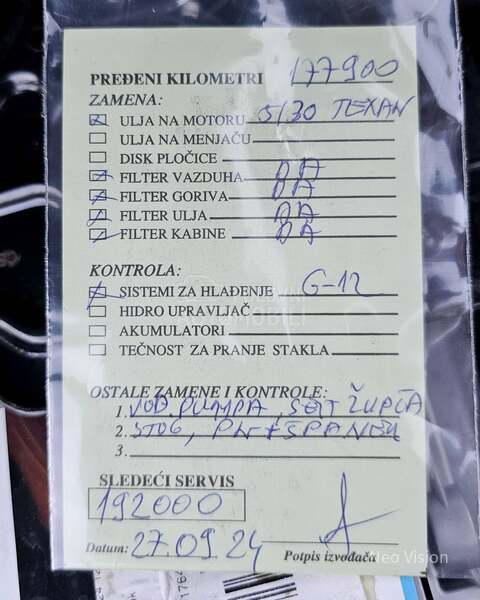 PREĐENI KILOMETRI 177900
ZAMENA:
ULJA NA MOTORU 5/30 TEXAN
ULJA NA MENJAČU
DISK PLOČICE
FILTER VAZDUHA DA
FILTER GORIVA DA
FILTER ULJA DA
FILTER KABINE DA
KONTROLA:
SISTEMI ZA HLAĐENJE G-12
HIDRO UPRAVLJAČ
AKUMULATORI
TEČNOST ZA PRANJE STAKLA
OSTALE ZAMENE I KONTROLE:
1. VOD. PUMPA, SET ZUPČA
2. STOG,
3.
SLEDEĆI SERVIS
192000
Datum: 27.09.24 Potpis izvođača
Neo Vision